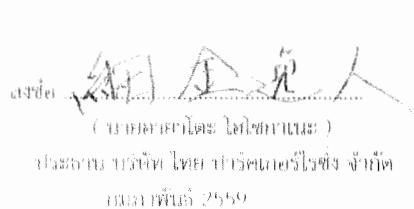 ลงชื่อ 細金 人
( นายฮายาโตะ โฮโซกาเนะ )
ประธาน บริษัท ไทย ปาร์คเกอร์ไรซิ่ง จำกัด
กุมภาพันธ์ 2559